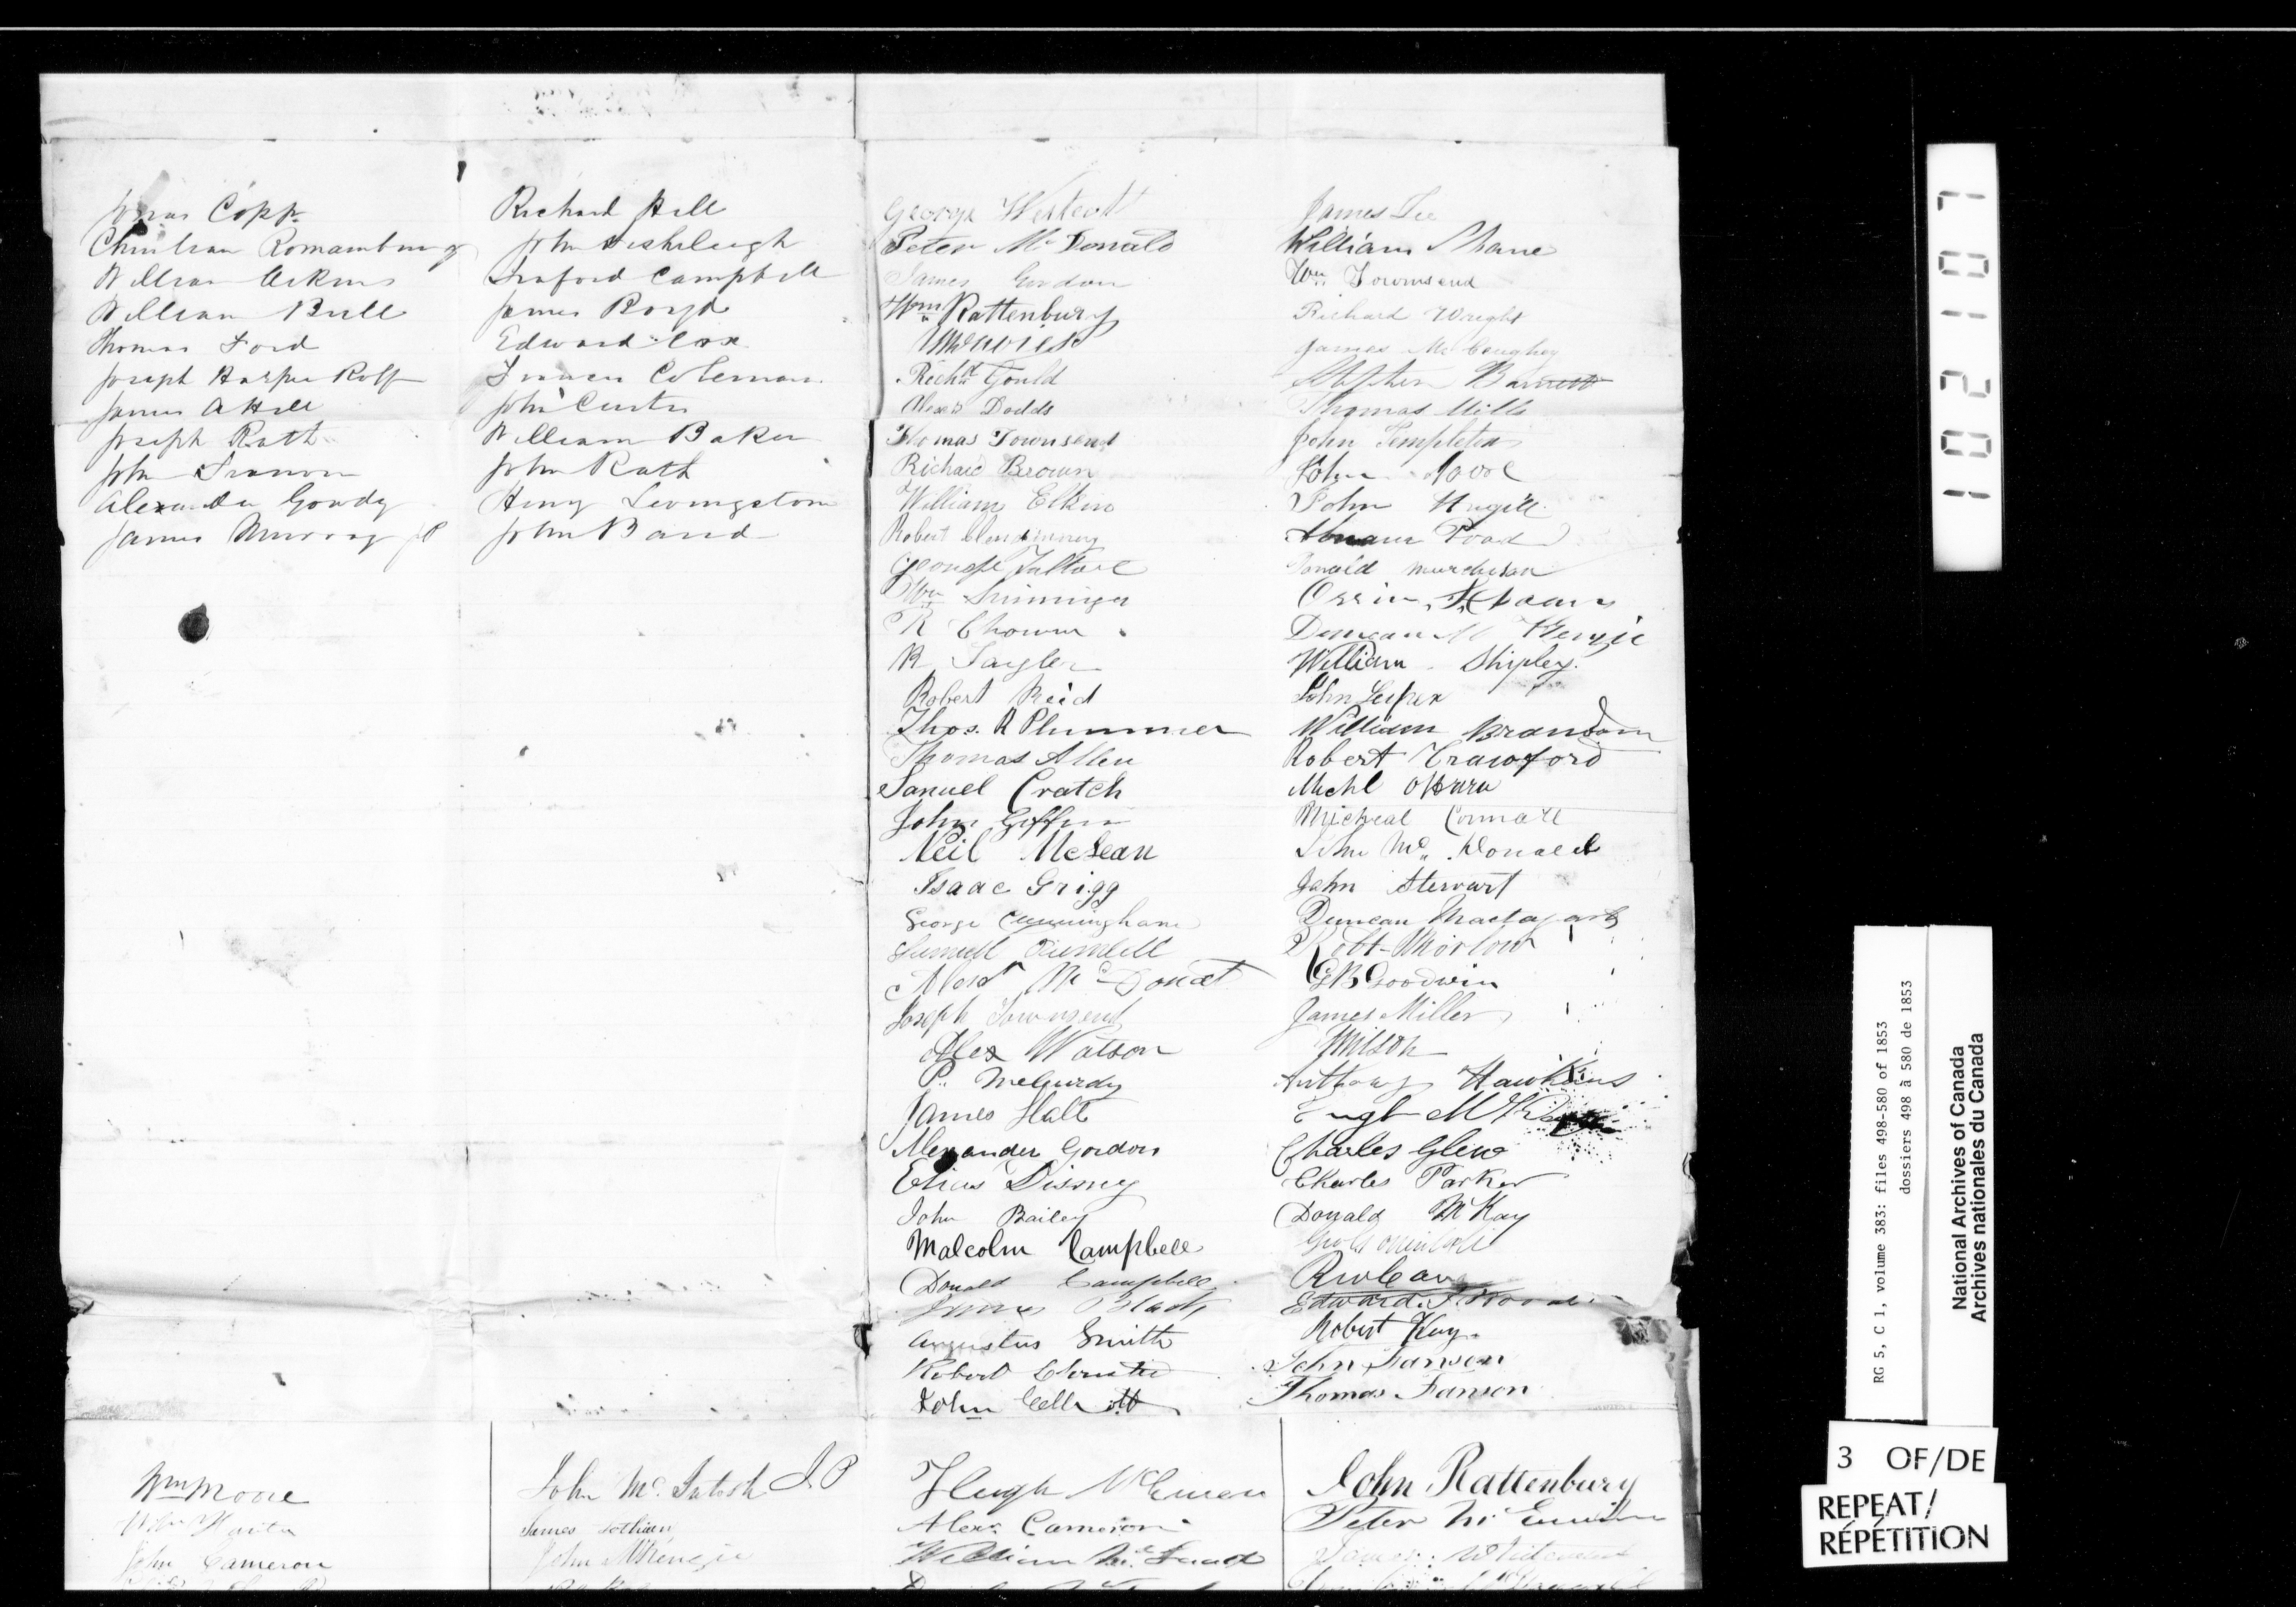 Jonas Copp
Christian Romamburg
William Askins
William Bull
Thomas Ford
Joseph Harper Rolf
James A Hill
Joseph Rath
John
Alexander Goudy
James Murray JP
Richard Hill
John
Campbell
James Boyd
Edward Cox
Francis Coleman
John Curtis
William Baker
John Rath
Henry Levingston
John Band
George
Peter McDonald
James Gordon
Wm Rattenbury
Richd Gould
Alexr Dodds
Thomas Townsend
Richard Brown
William Elkin
Robert
George
Wm
R Chown
R Taylor
Robert Reid
Thos. R Plummer
Thomas Allen
Samuel Cratch
John Giffin
Neil McLean
Isaac Grigg
George Cunningham
Samuel
Alexr McDonald
Joseph Townsend
Alex Watson
P. McCurdy
James Hall
Alexander Gordon
Elias Disney
John Bailey
Malcolm Campbell
Donald Campbell
James Black
Augustus Smith
Robert Christie
John Elliott
James Lee
William Shane
Wm. Townsend
Richard Wright
James McCaughey
Stephen Barrett
Thomas Mills
John Templeton
John
John Hugill
Donald Murchison
Orrin
Duncan McKenzie
William Shipley.
John
William Brandon
Robert Crawford
Michl OHara
Micheal
John Mc Donald
John Stewart
Duncan
Robt Morlow
G B Goodwin
James Miller
Wilson
Anthony Hawkins
Hugh
Charles Glew
Charles Parker
Donald McKay
Edward
Robert Kay
John Fanson
Thomas Fanson
Wm Moore
Wm
John Cameron
John McIntosh J.P
James Lothian
John McKenzie
Hugh McEwen
Alexr Cameron
William
John Rattenbury
Peter McEwen
James
102107
RG 5, C 1, volume 383: files 498-580 of 1853
dossiers 498 à 580 de 1853
National Archives of Canada
Archives nationales du Canada
3 OF/DE
REPEAT/
RÉPÉTITION